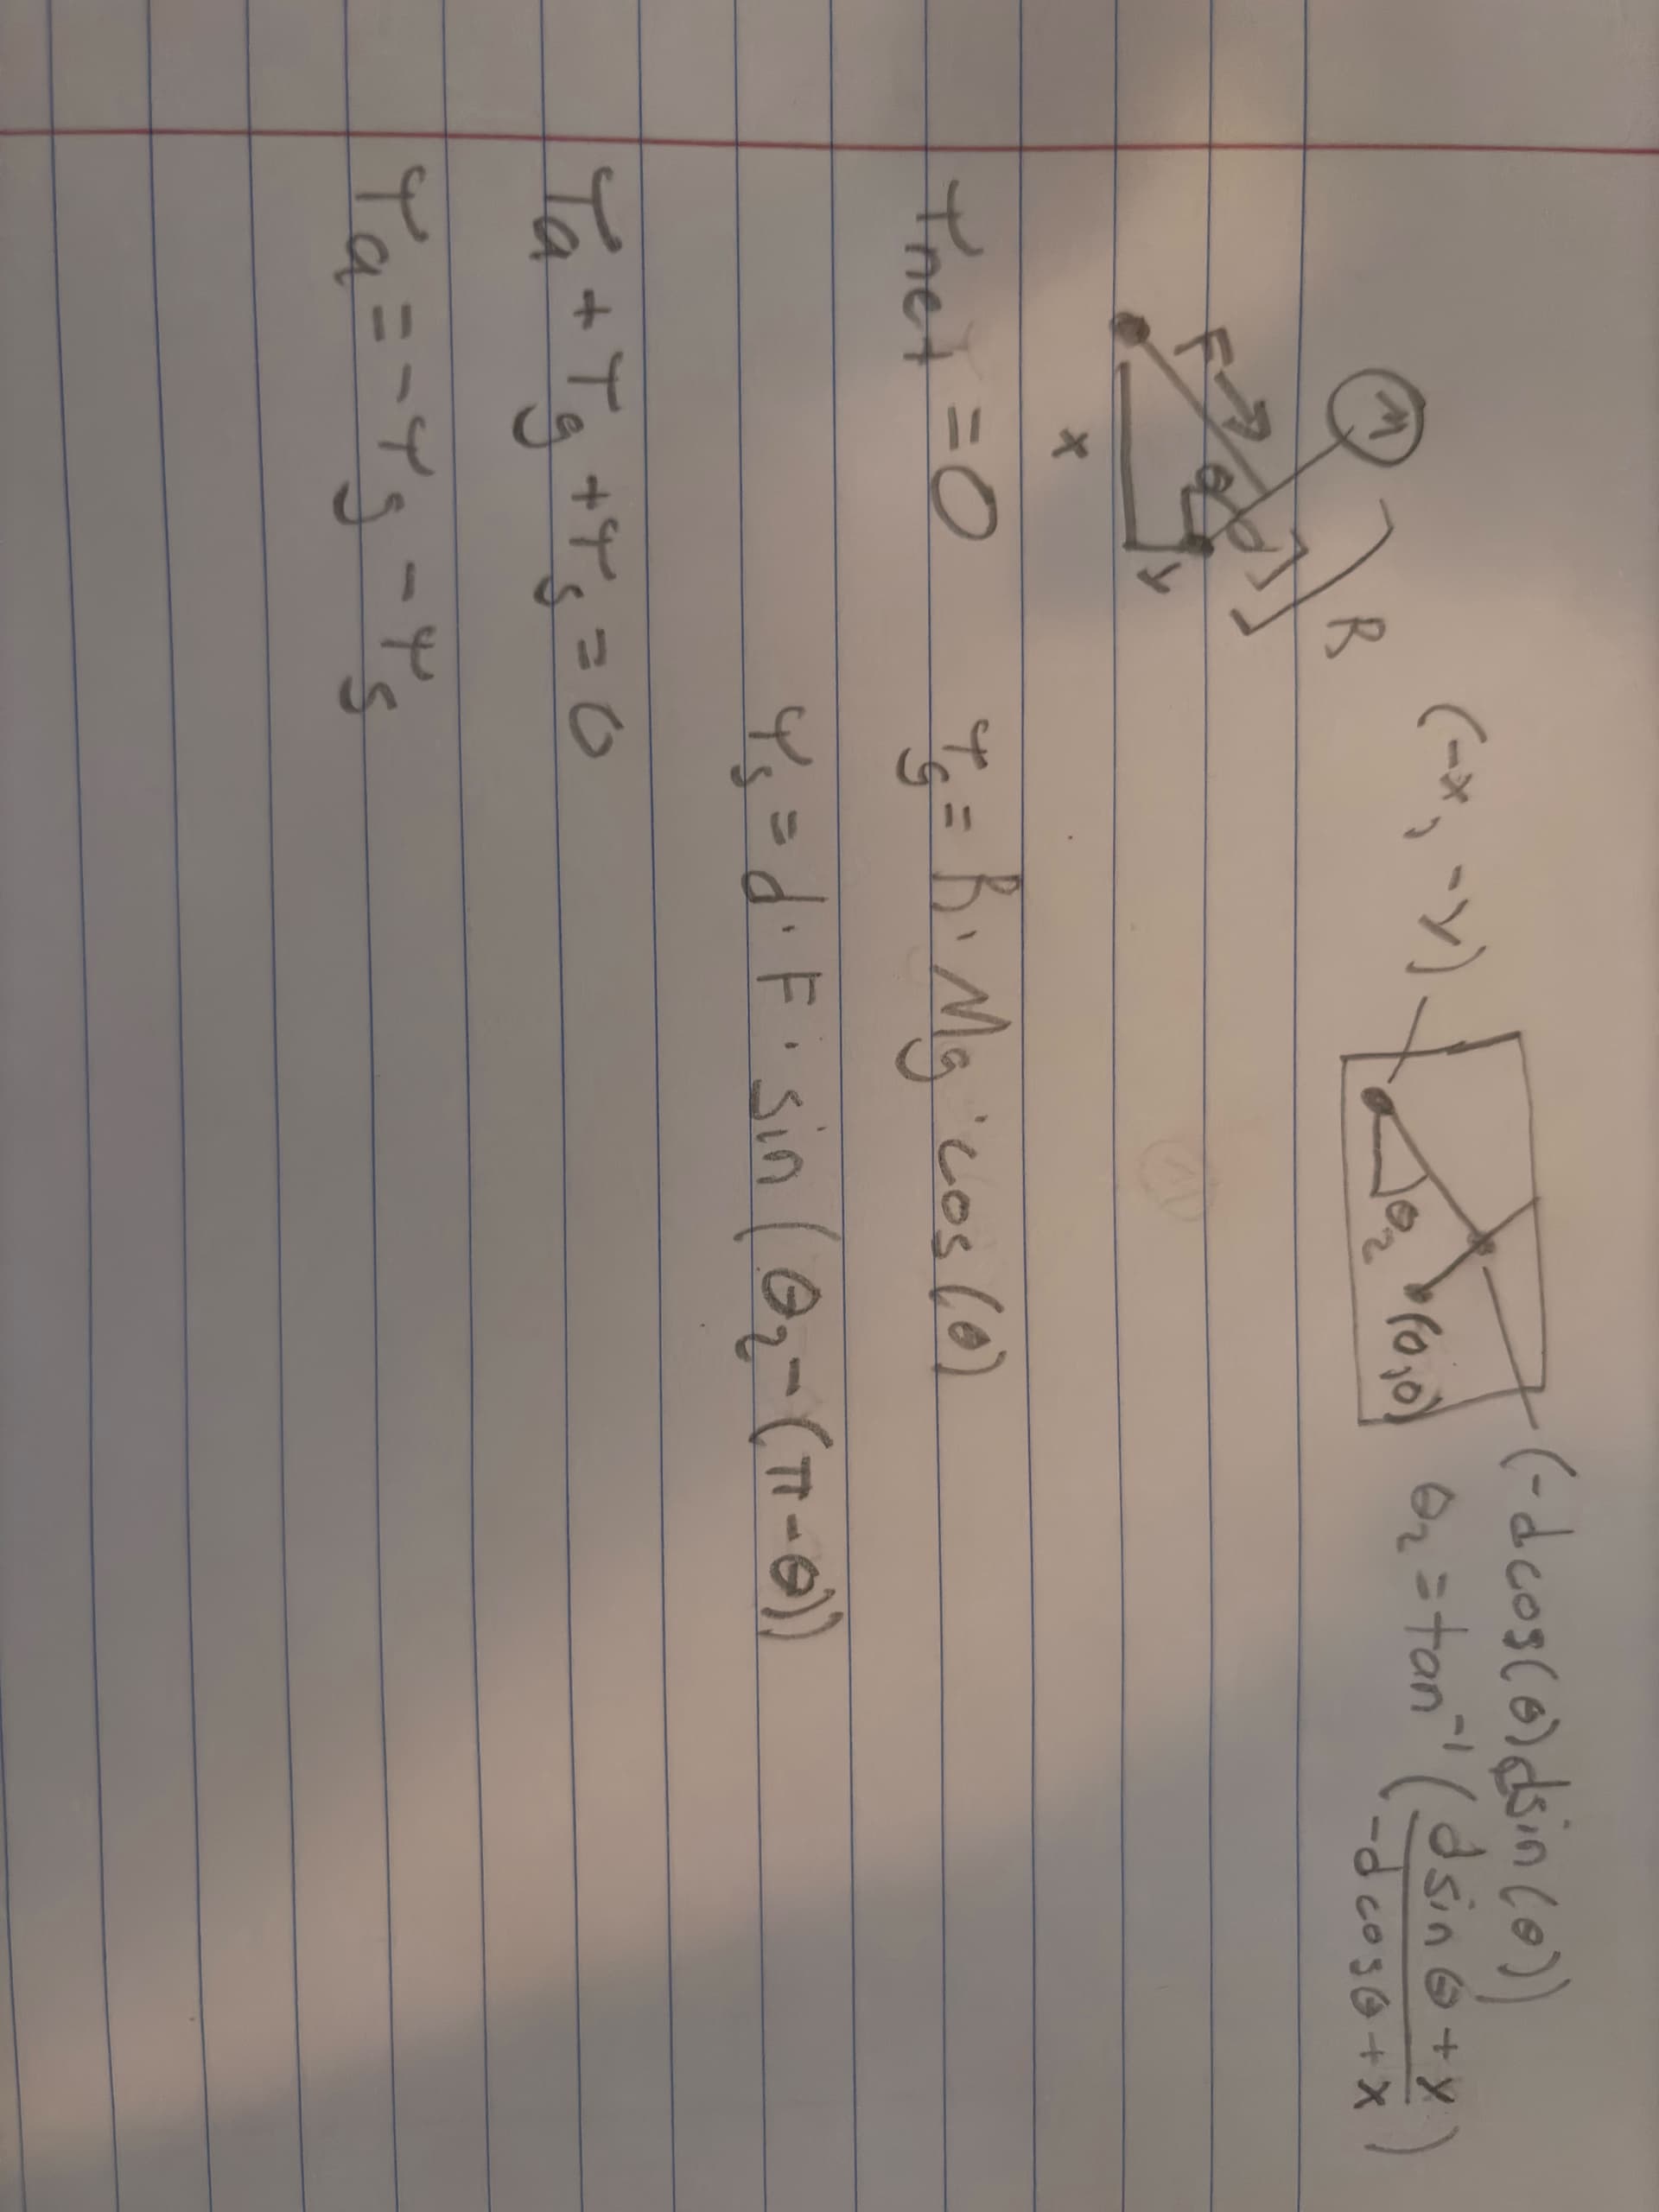 M
R
F
θ
d
y
x
(-x, -y)
θ₂
(0,0)
(-d cos(θ), d sin(θ))
θ₂ = tan⁻¹ ( (d sin θ + y) / (-d cos θ + x) )
τnet = 0
τg = R · Mg · cos(θ)
τs = d · F · sin (θ₂ - (π - θ))
τa + τg + τs = 0
τa = -τg - τs